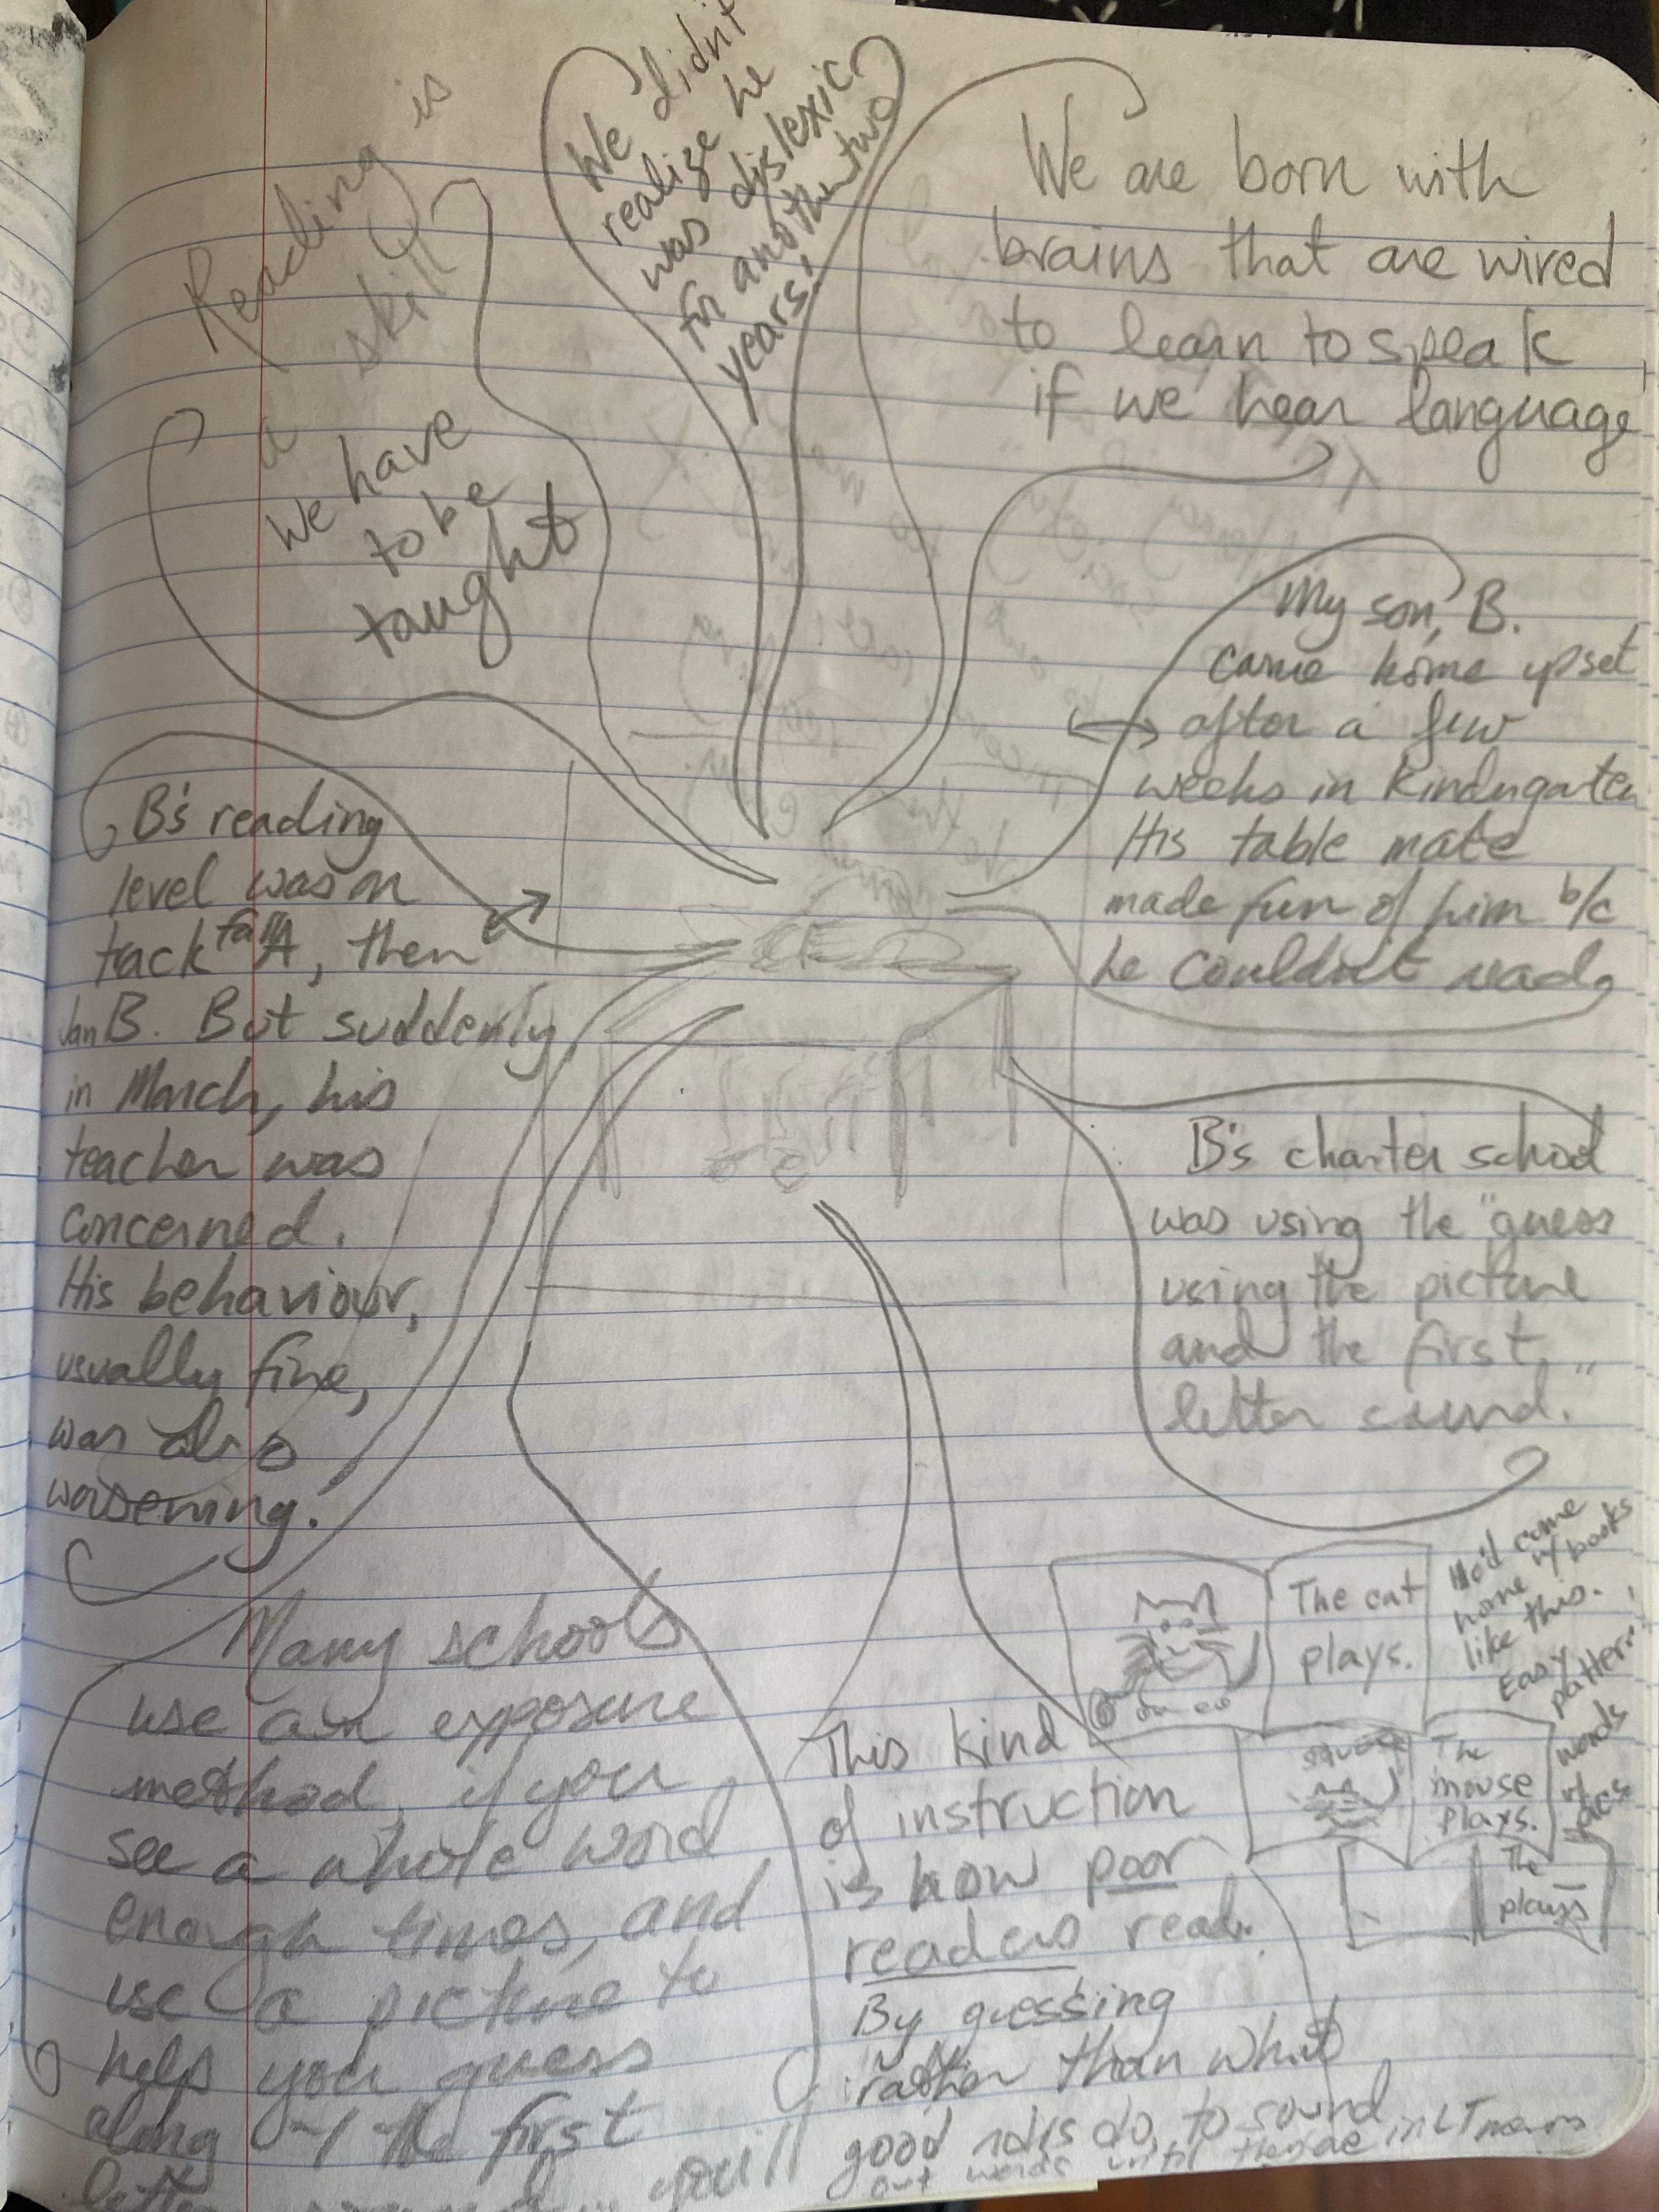 Reading is
a skill
We have
to be
taught
We didn't
realize he
was dyslexic
for another two
years!
We are born with
brains that are wired
to learn to speak
if we hear language
My son, B.
came home upset
after a few
weeks in Kindergarten
His table mate
made fun of him b/c
he couldn't read
B's reading
level was on
track Fall A, then
Jan B. But suddenly
in March, his
teacher was
concerned.
His behaviour,
usually fine,
was also
worsening.
B's charter school
was using the "guess
using the picture
and the first
letter sound."
He'd come
home w/ books
like this.
Easy
pattern
words
w/
pics
The cat
plays.
The
mouse
plays.
The _
plays
Many schools
use an exposure
method, if you
see a whole word
enough times, and
use a picture to
help you guess
along w/ the first
letter you'll
This kind
of instruction
is how poor
readers read.
By guessing
rather than what
good rdrs do, to sound
out words until they're in LT mem